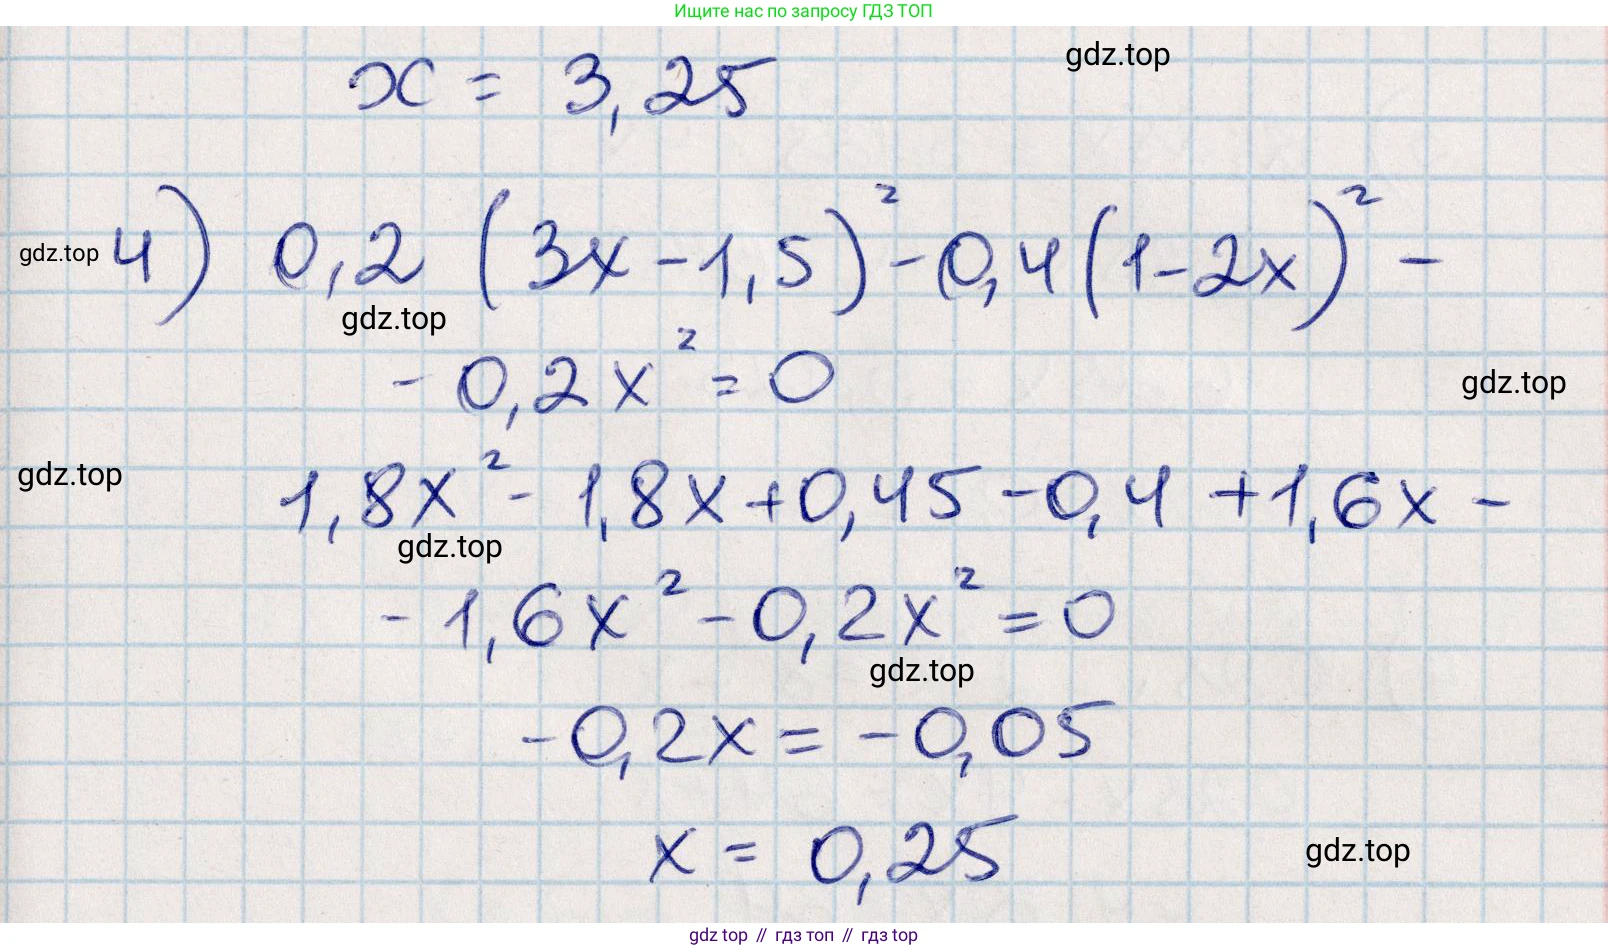 Ищите нас по запросу ГДЗ ТОП
x = 3,25
gdz.top
4) 0,2 (3x - 1,5)² - 0,4 (1 - 2x)² -
gdz.top
gdz.top
- 0,2x² = 0
gdz.top
gdz.top
1,8x² - 1,8x + 0,45 - 0,4 + 1,6x -
gdz.top
- 1,6x² - 0,2x² = 0
gdz.top
-0,2x = -0,05
x = 0,25
gdz.top
gdz top // гдз топ // гдз top